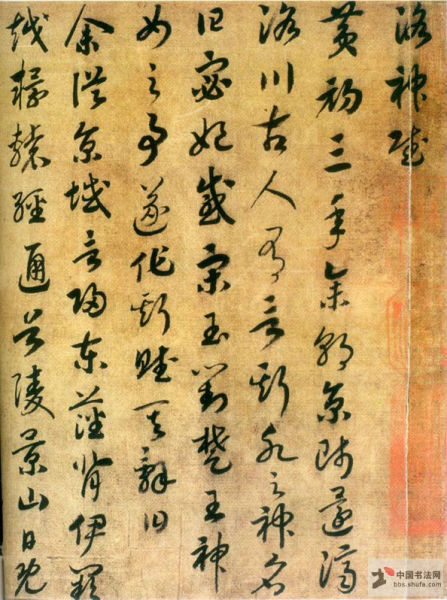 洛神賦
黃初三年余朝京師還濟
洛川古人有言斯水之神名
曰宓妃感宋玉對楚王神
女之事遂作斯賦其辭曰
余從京域言歸東藩背伊闕
越轘轅經通谷陵景山日既
中国书法网
bbs.shufa.com